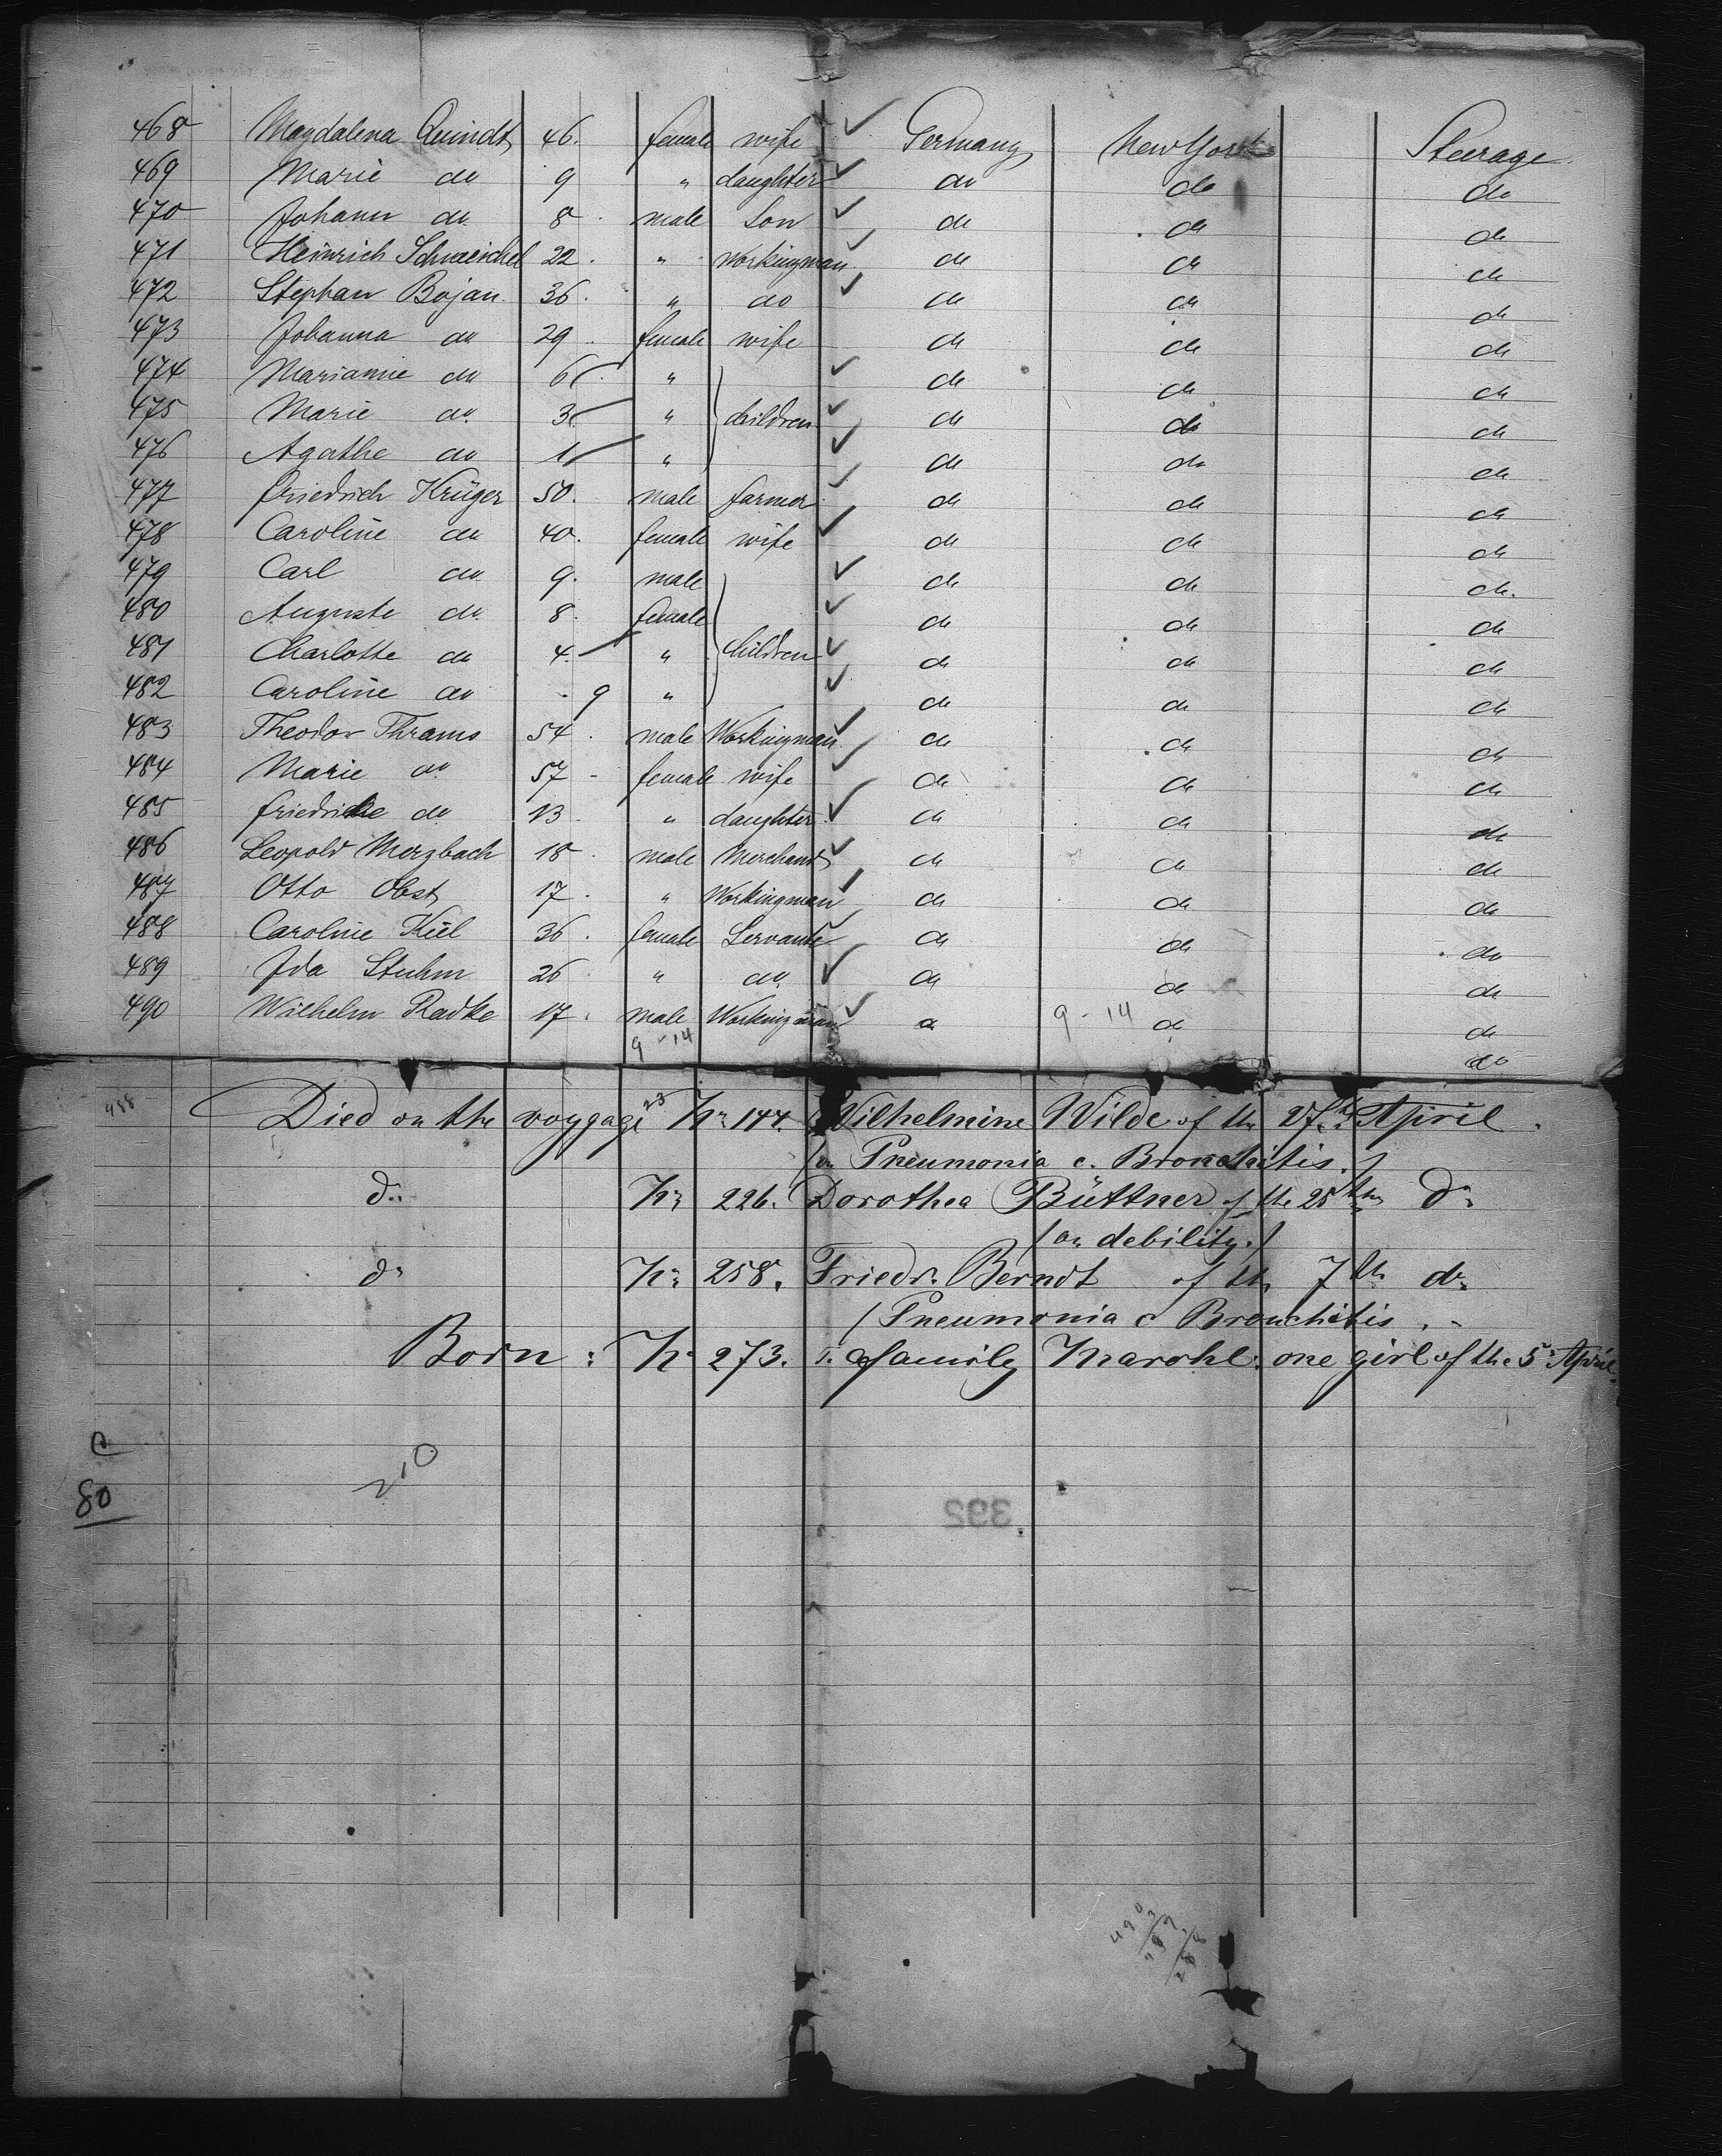 468 Magdalena Quindt 46. female wife ✓ Germany New York Steerage
469 Marie do 9 " daughter ✓ do do do
470 Johann do 8 male Son ✓ do do do
471 Heinrich Schweichel 22. " Workingman ✓ do do do
472 Stephan Bojan 36. " do ✓ do do do
473 Johanna do 29 female wife do do do
474 Marianne do 6 " ✓ do do do
475 Marie do. 3 " children ✓ do do do
476 Agathe do 1 " ✓ do do do
477 Friedrich Krüger 50. male farmer ✓ do do do
478 Caroline do 40. female wife ✓ do do do
479 Carl do 9. male ✓ do do do.
480 Auguste do. 8. female ✓ do do do
481 Charlotte do 4. " children ✓ do do do
482 Caroline do - 9 " ✓ do do do
483 Theodor Thrams 54. male Workingman ✓ do do do
484 Marie do 57 - female wife ✓ do do do
485 Friedricke do 13 " daughter ✓ do do do
486 Leopold Merzbach 18. male Merchant ✓ do do do
487 Otto Obst 17. " Workingman ✓ do do do
488 Caroline Kiel 36. female Servant ✓ do do do
489 Ida Stuhm 26 " do. ✓ do do do
490 Wilhelm Radke 17. male Workingman ✓ do do do
9-14 9-14 do
488 Died on the voygage 23 No 144. Wilhelmine Wilde of the 27th April.
(on Pneumonia c. Bronchitis.)
do No 226. Dorothea Büttner of the 28th do
(on debility.)
do No 258. Friedr. Berndt of th 7th do
(Pneumonia c Bronchitis.
Born: No 273. family Marohl: one girl of the 5th April.
C
80
210
392
490
3
489
288